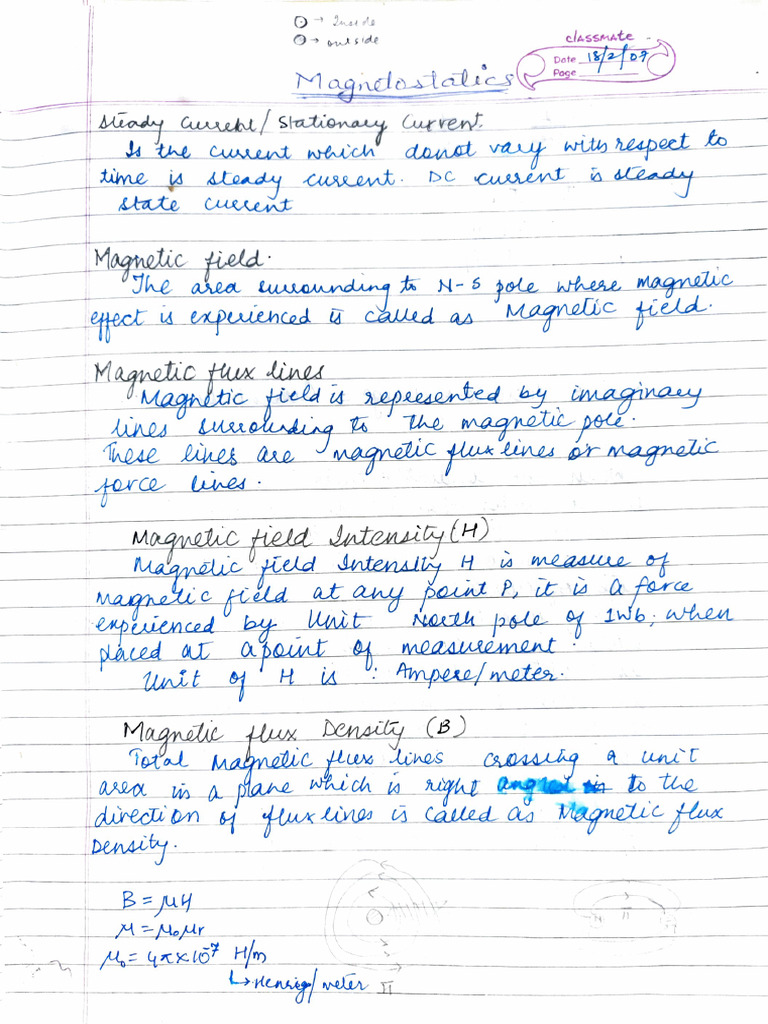 → Inside
→ outside
classmate
Date 18/2/07
Page
Magnetostatics
Steady Current/Stationary Current.
Is the current which donot vary with respect to
time is steady current. DC current is steady
state current
Magnetic field.
The area surrounding to N-S pole where magnetic
effect is experienced is called as Magnetic field.
Magnetic flux lines
Magnetic field is represented by imaginary
lines surrounding to the magnetic pole.
These lines are magnetic flux lines or magnetic
force lines.
Magnetic field Intensity (H)
Magnetic field Intensity H is measure of
magnetic field at any point P, it is a force
experienced by Unit North pole of 1Wb, when
placed at a point of measurement.
Unit of H is : Ampere/meter.
Magnetic flux Density (B)
Total Magnetic flux lines crossing a unit
area in a plane which is right angled to the
direction of flux lines is called as Magnetic flux
Density.
B = μH
μ = μ₀μr
μ₀ = 4π×10⁻⁷ H/m
↳ Henrig/meter